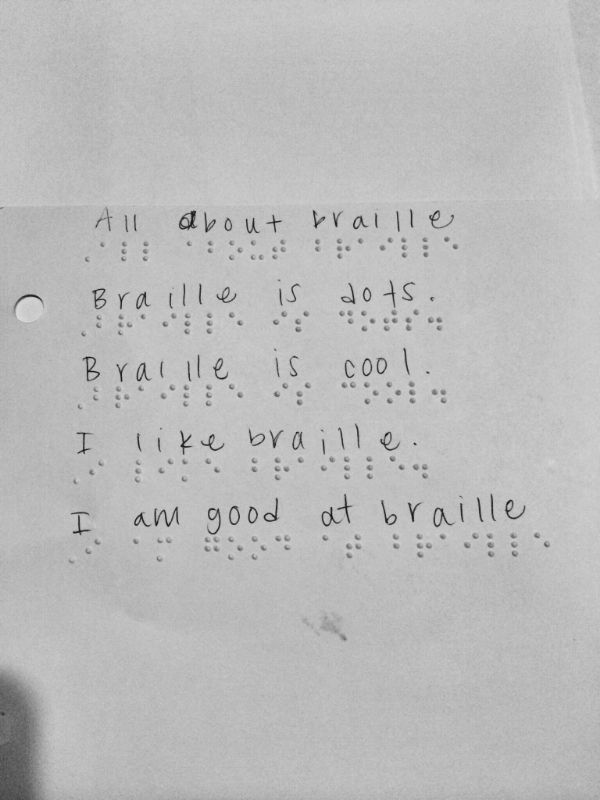 All about braille
⠠⠁⠇⠇ ⠁⠃⠕⠥⠞ ⠃⠗⠁⠊⠇⠇⠑
Braille is dots.
⠠⠃⠗⠁⠊⠇⠇⠑ ⠊⠎ ⠙⠕⠞⠎⠲
Braille is cool.
⠠⠃⠗⠁⠊⠇⠇⠑ ⠊⠎ ⠉⠕⠕⠇⠲
I like braille.
⠠⠊ ⠇⠊⠅⠑ ⠃⠗⠁⠊⠇⠇⠑⠲
I am good at braille
⠠⠊ ⠁⠍ ⠛⠕⠕⠙ ⠁⠞ ⠃⠗⠁⠊⠇⠇⠑